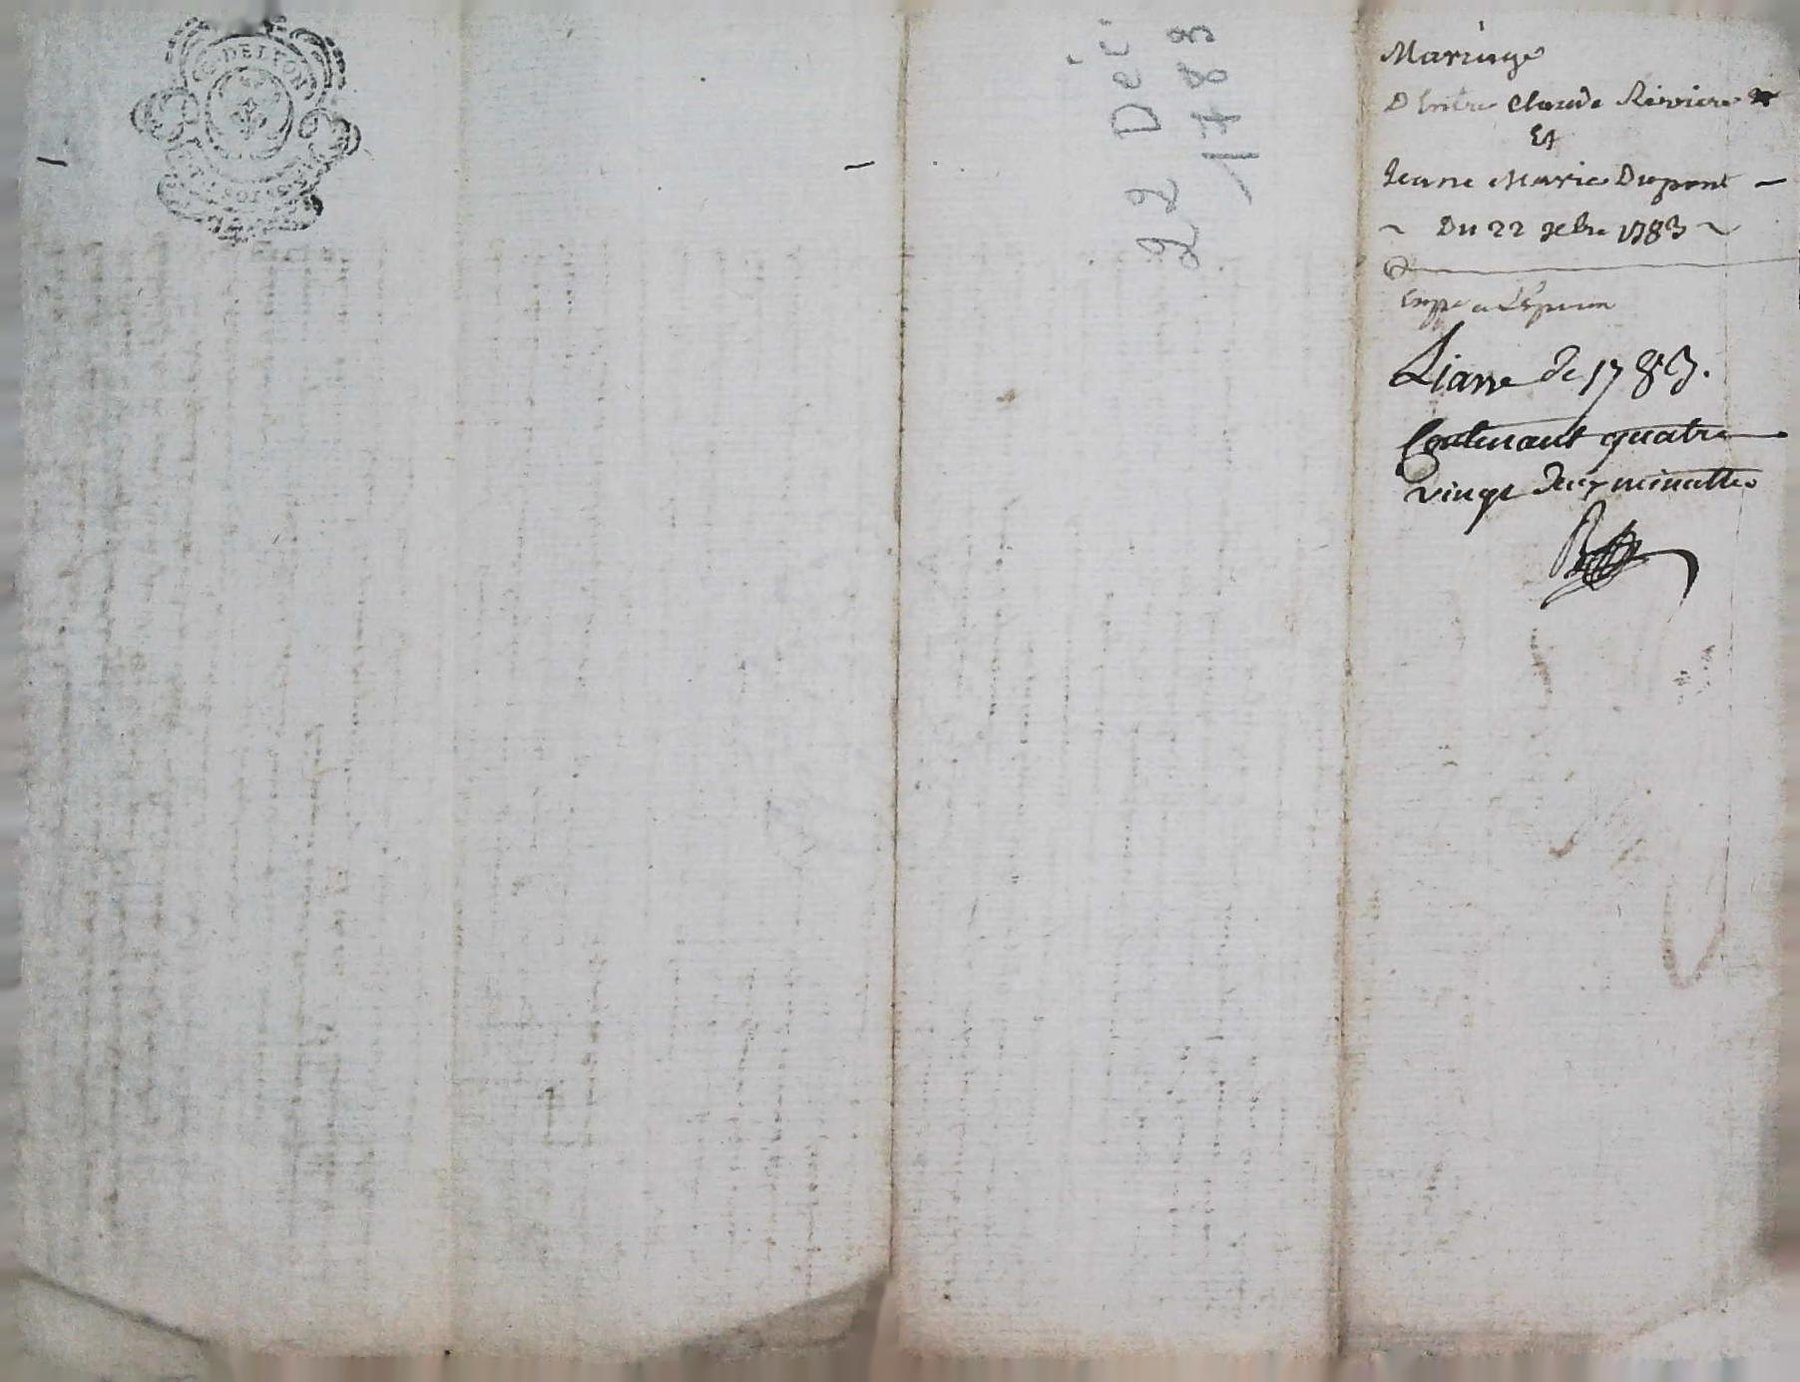 G. DE LYON
22 Déc
1783
Mariage
D'Entre Claude Riviere
Et
Jeanne Marie Dupont —
~ Du 22 xbre 1783 ~
Liasse de 1783.
Contenant quatre
vingt deux minuttes